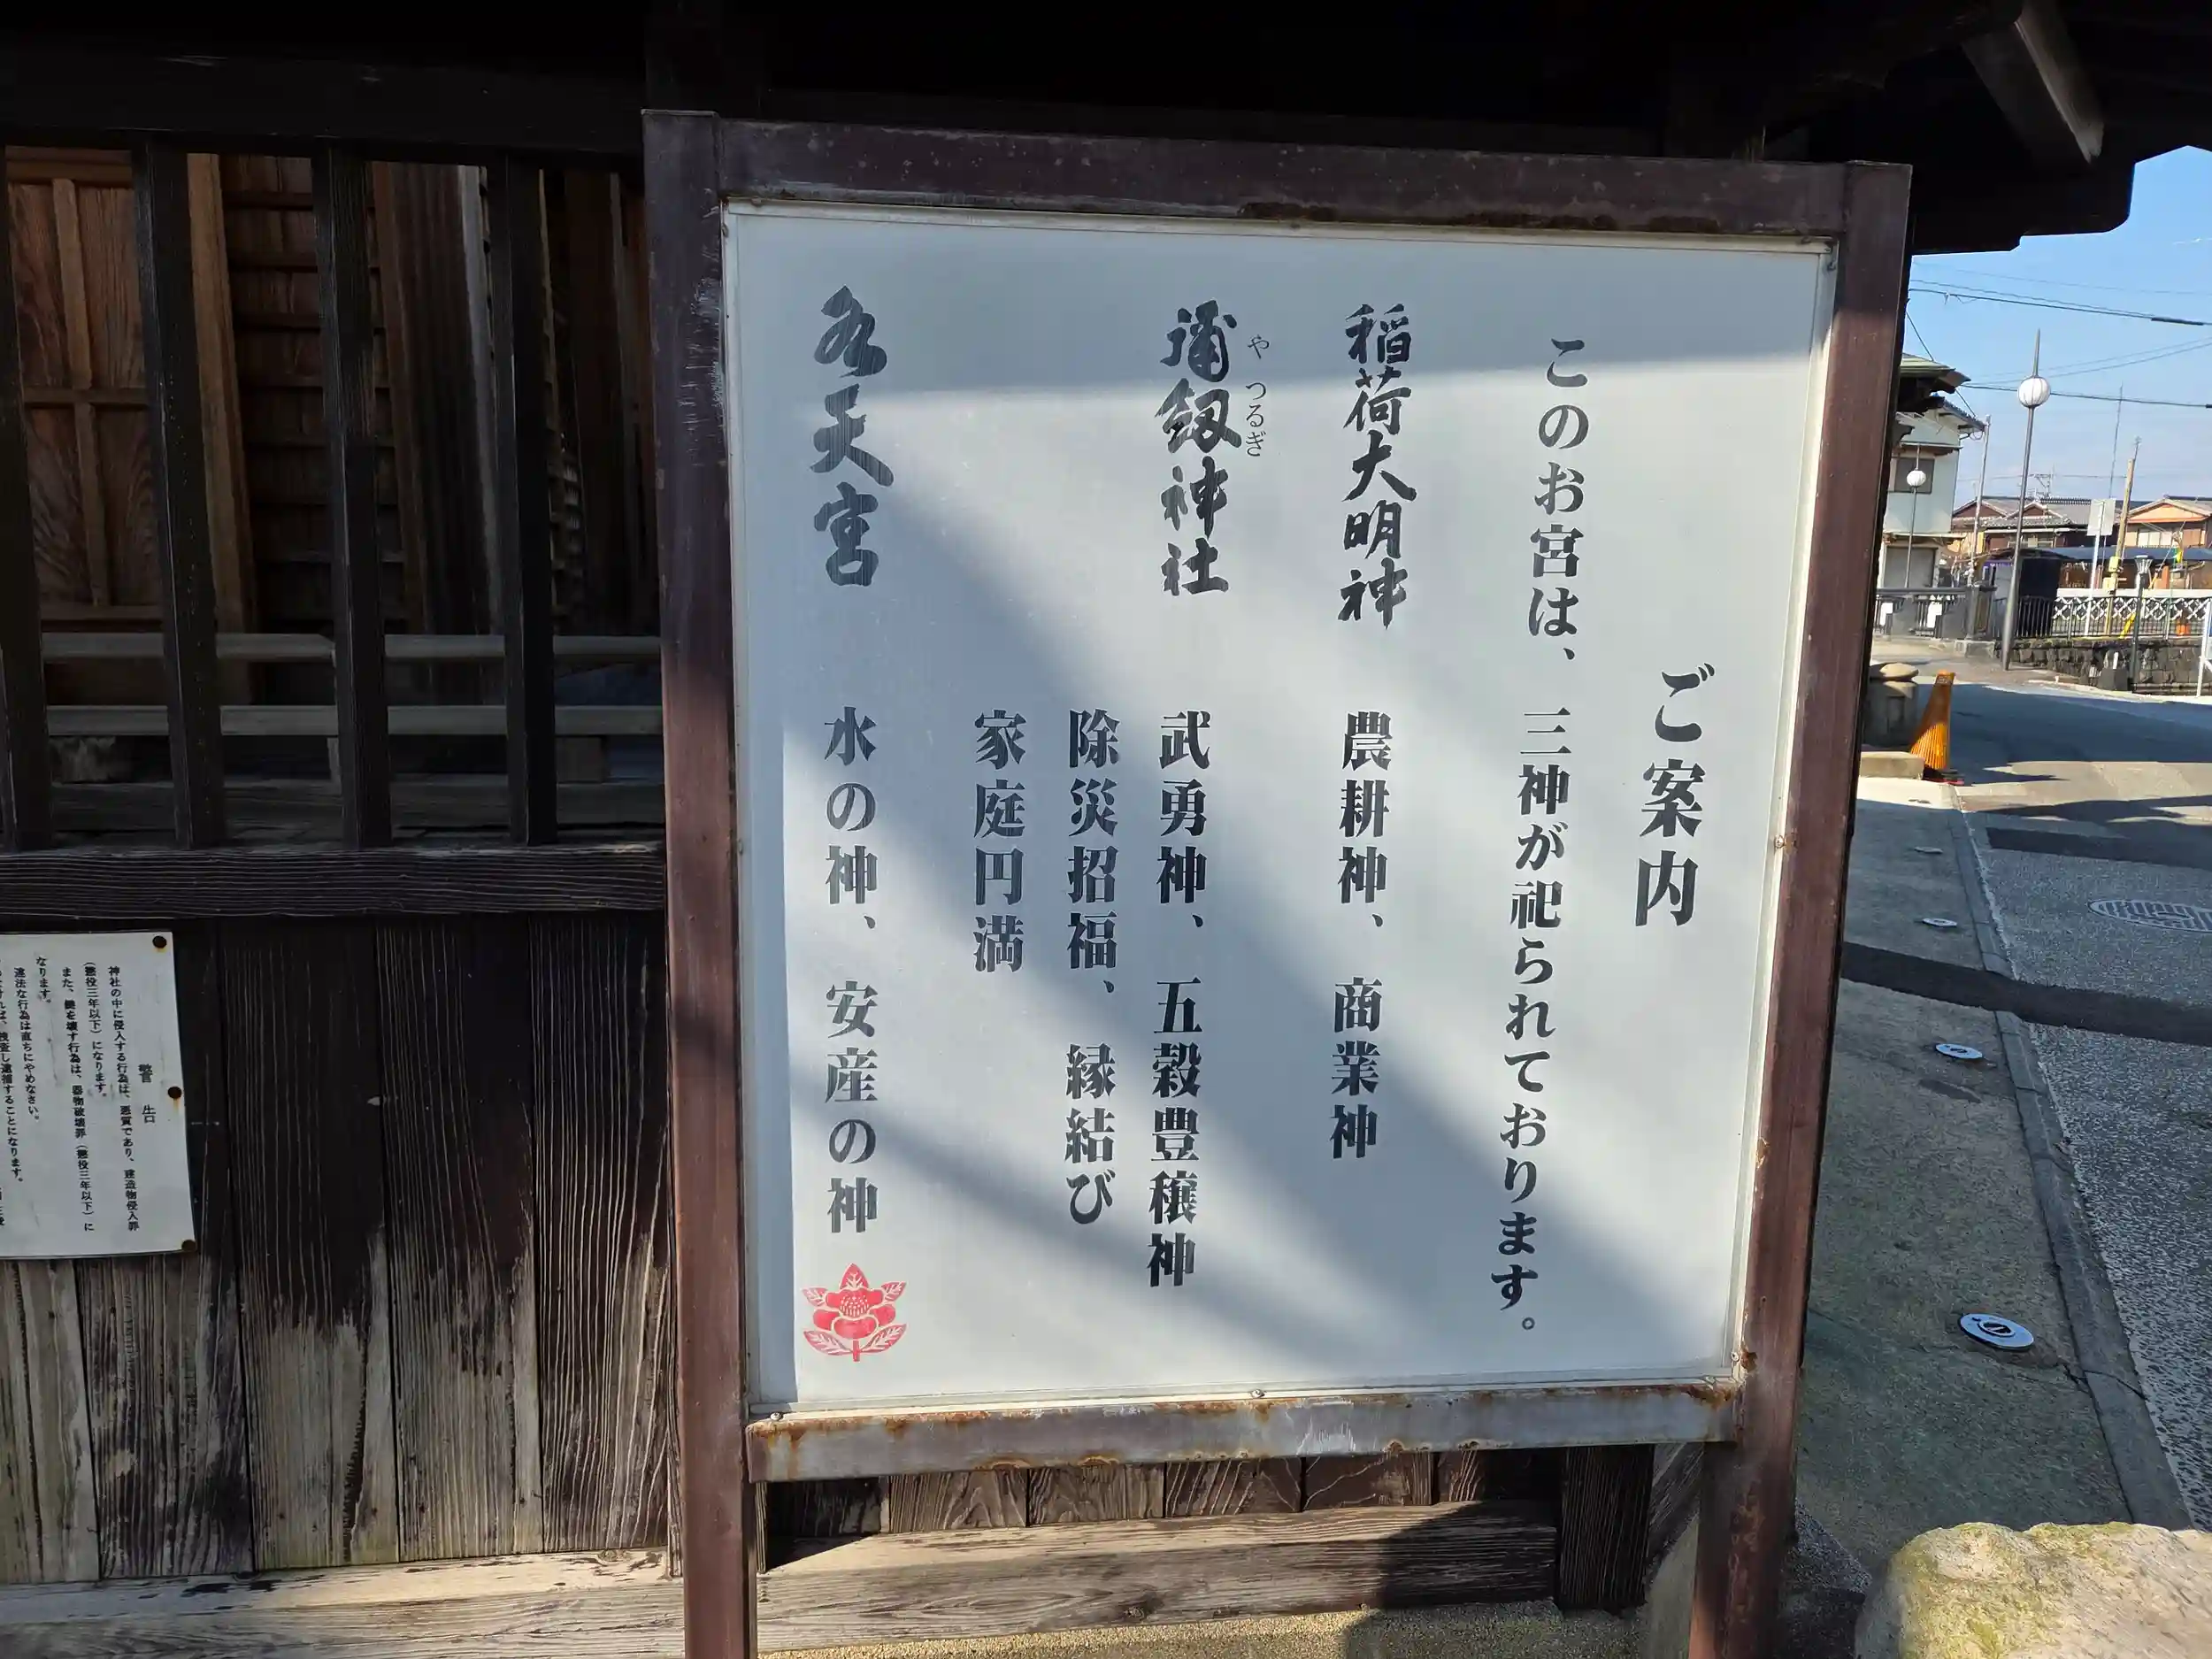 ご案内
このお宮は、三神が祀られております。
稲荷大明神 農耕神、商業神
やつるぎ
彌釼神社 武勇神、五穀豊穣神
除災招福、縁結び
家庭円満
水天宮 水の神、安産の神
警告
神社の中に侵入する行為は、悪質であり、建造物侵入罪
(懲役三年以下)になります。
また、鍵を壊す行為は、器物破壊罪(懲役三年以下)に
なります。
違法な行為は直ちにやめなさい。
捜査し逮捕することになります。